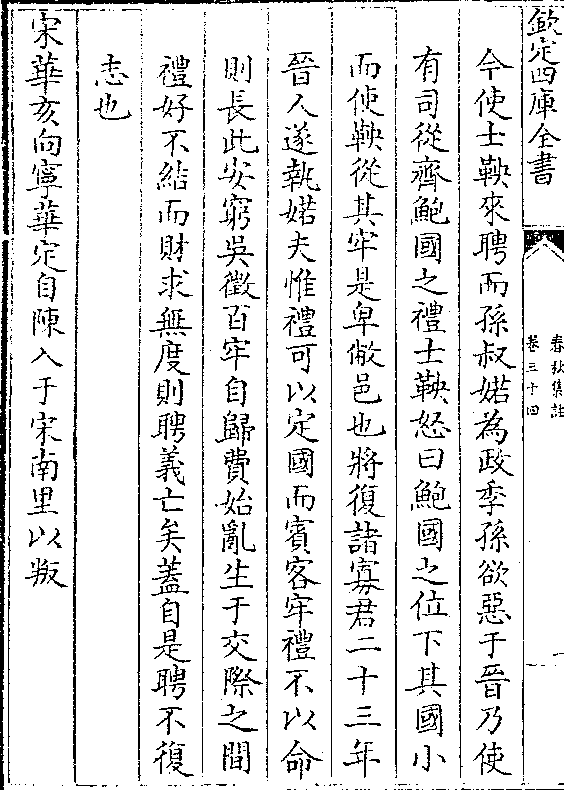 欽定四庫全書
春秋集註
卷三十四
今使士鞅來聘而孫叔婼為政季孫欲惡于晉乃使
有司從齊鮑國之禮士鞅怒曰鮑國之位下其國小
而使鞅從其牢是卑敝邑也將復諸寡君二十三年
晉人遂執婼夫惟禮可以定國而賓客牢禮不以命
則長此安窮吳徵百牢自歸費始亂生于交際之間
禮好不結而財求無度則聘義亡矣蓋自是聘不復
志也
宋華亥向寧華定自陳入于宋南里以叛